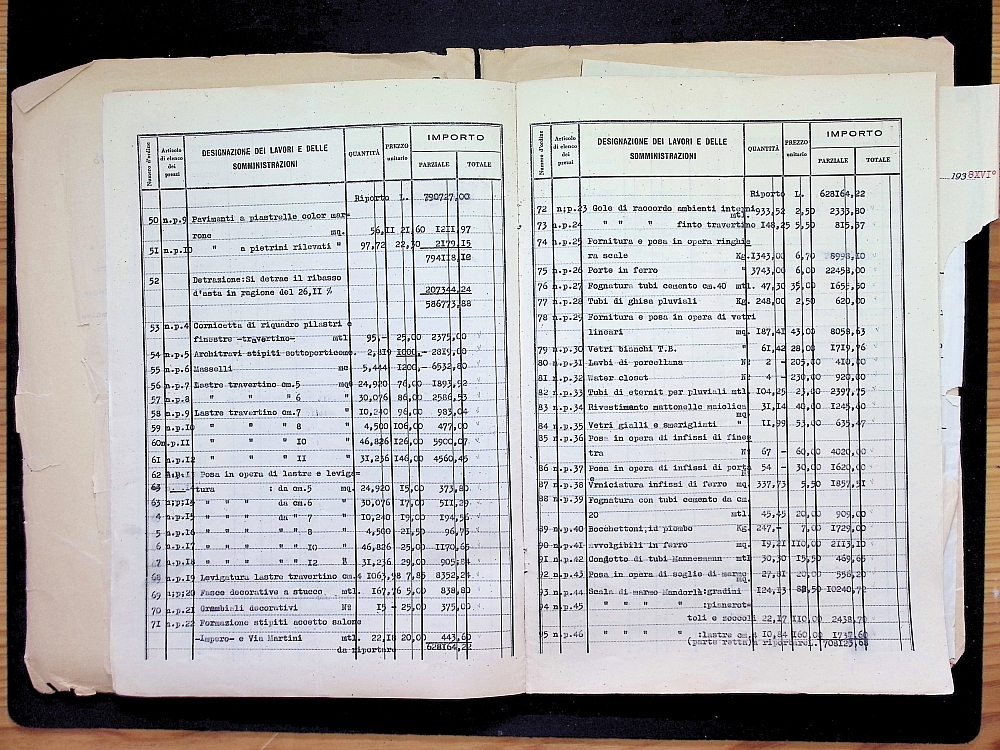 Numero d'ordine
Articolo di elenco dei prezzi
DESIGNAZIONE DEI LAVORI E DELLE SOMMINISTRAZIONI
QUANTITÀ
PREZZO unitario
IMPORTO
PARZIALE
TOTALE
Riporto L. 790727,00
50 n.p.9 Pavimenti a piastrelle color mar-
rone mq. 56,11 21,60 1211,97
51 n.p.10 " a pietrini rilevati " 97,72 22,30 2179,15
794118,12
52 Detrazione:Si detrae il ribasso
d'asta in ragione del 26,11 % 207344,24
586773,88
53 n.p.4 Cornicetta di riquadro pilastri e
finestre -travertino- mtl 95,- 25,00 2375,00
54 n.p.5 Architravi stipiti sottoportico mc. 2,819 1000,- 2819,00
55 n.p.6 Masselli mc 5,444 1200,- 6532,80
56 n.p.7 Lastre travertino cm.5 mq 24,920 76,00 1893,92
57 n.p.8 " " " 6 30,076 86,00 2586,53
58 n.p.9 Lastre travertino cm.7 " 10,240 96,00 983,04
59 n.p.10 " " " 8 " 4,500 106,00 477,00
60 n.p.11 " " " 10 " 46,826 126,00 5900,07
61 n.p.12 " " " 11 " 31,236 146,00 4560,45
62 Posa in opera di lastre e leviga-
63 tura : da cm.5 mq. 24,920 15,00 373,80
63 n.p.14 " " " da cm.6 " 30,076 17,00 511,29
4 n.p.15 " " " da " 7 " 10,240 19,00 194,56
5 n.p.16 " " " " 8 4,500 21,50 96,75
6 n.p.17 " " " " 10 " 46,826 25,00 1170,65
7 n.p.18 " " " " 12 " 31,236 29,00 905,84
68 n.p.19 Levigatura lastre travertino cm.4 1063,98 7,85 8352,24
69 n.p.20 Fasce decorative a stucco mtl. 167,76 5,00 838,80
70 n.p.21 Grembiali decorativi N° 15 - 25,00 375,00
71 n.p.22 Formazione stipiti accetto salone
-Impero- e Via Martini mtl. 22,18 20,00 443,60
da riportare 628164,22
Numero d'ordine
Articolo di elenco dei prezzi
DESIGNAZIONE DEI LAVORI E DELLE SOMMINISTRAZIONI
QUANTITÀ
PREZZO unitario
IMPORTO
PARZIALE
TOTALE
Riporto L. 628164,22
72 n.p.23 Gole di raccordo ambienti interni mtl. 933,52 2,50 2333,80
73 n.p.24 " " " finto travertino 148,25 5,50 815,37
74 n.p.25 Fornitura e posa in opera ringhie
ra scale Kg. 1343,00 6,70 8998,10
75 n.p.26 Porte in ferro " 3743,00 6,00 22458,00
76 n.p.27 Fognatura tubi cemento cm.40 mtl. 47,30 35,00 1655,50
77 n.p.28 Tubi di ghisa pluviali Kg. 248,00 2,50 620,00
78 n.p.29 Fornitura e posa in opera di vetri
lineari mq. 187,41 43,00 8058,63
79 n.p.30 Vetri bianchi T.B. " 61,42 28,00 1719,76
80 n.p.31 Lavbi di porcellana N° 2 - 205,00 410,00
81 n.p.32 Water closet N° 4 - 230,00 920,00
82 n.p.33 Tubi di eternit per pluviali mtl. 104,25 23,00 2397,75
83 n.p.34 Rivestimento mattonelle maiolica mq. 31,14 40,00 1245,60
84 n.p.35 Vetri gialli e smerigliati " 11,99 53,00 635,47
85 n.p.36 Posa in opera di infissi di fines
tra N° 67 - 60,00 4020,00
86 n.p.37 Posa in opera di infissi di porta N° 54 - 30,00 1620,00
87 n.p.38 Vrniciatura infissi di ferro mq. 337,73 5,50 1857,51
88 n.p.39 Fognatura con tubi cemento da cm.
20 mtl. 45,45 20,00 909,00
89 n.p.40 Bocchettoni,id piombo Kg. 247,- 7,00 1729,00
90 n.p.41 avvolgibili in ferro mq. 19,21 110,00 2113,10
91 n.p.42 Condotto di tubi Mannesmann mtl 30,30 15,50 469,65
92 n.p.43 Posa in opera di soglie di marmo mq. 27,81 20,00 556,20
93 n.p.44 Scala di marmo Mandorlà:gradini 124,13 82,50 10240,72
94 n.p.45 " " " " :pianerot-
toli e zoccoli 22,17 110,00 2438,70
95 n.p.46 " " " " :lastre cm.4 10,84 160,00 1737,60
(parte retta)a riportare L. 708125,68
1938XVI°